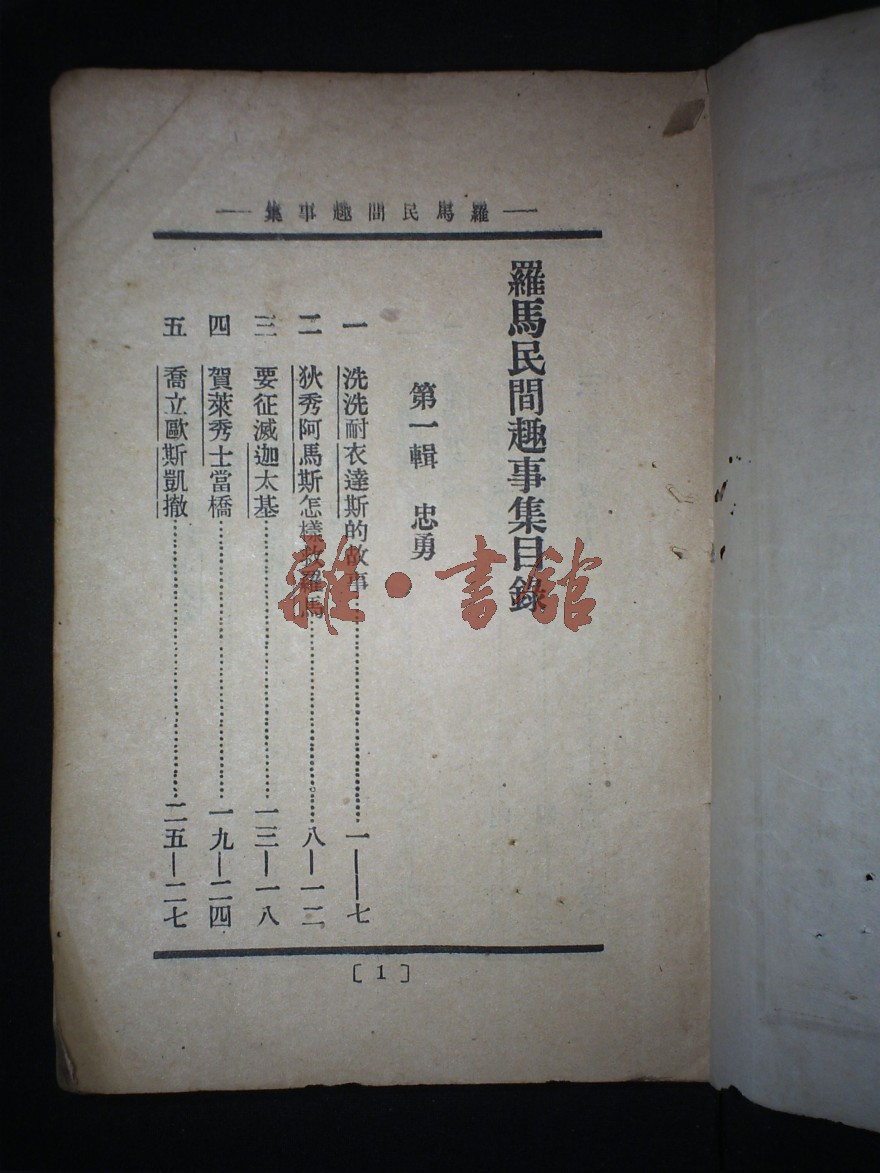 —羅馬民間趣事集—
羅馬民間趣事集目錄
第一輯 忠勇
一 洗洗耐衣達斯的故事……一——七
二 狄秀阿馬斯怎樣救羅馬……八—一二
三 要征滅迦太基……一三—一八
四 賀萊秀士當橋……一九—二四
五 喬立歐斯凱撤……二五—二七
〔1〕
雜·書館